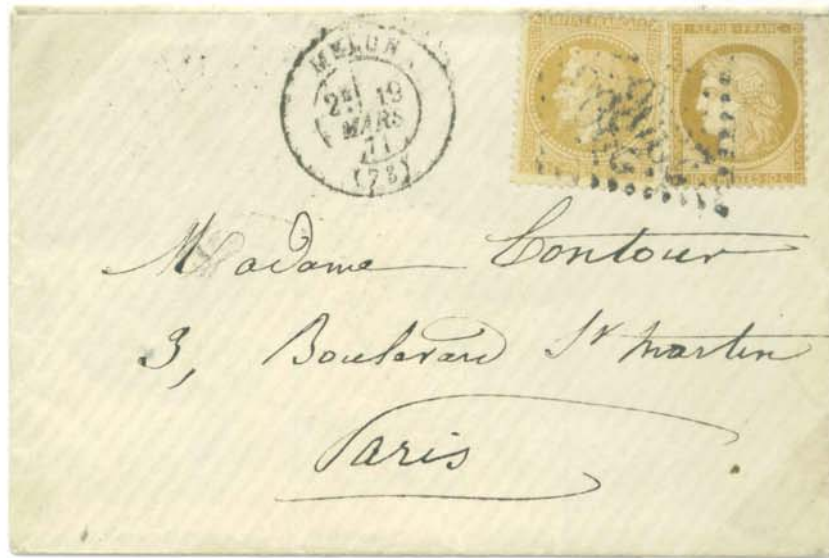 MELUN
2E 19
MARS
71
(73)
REPUB FRANC
10 C POSTES 10 C
Madame Contour
3, Boulevard St Martin
Paris